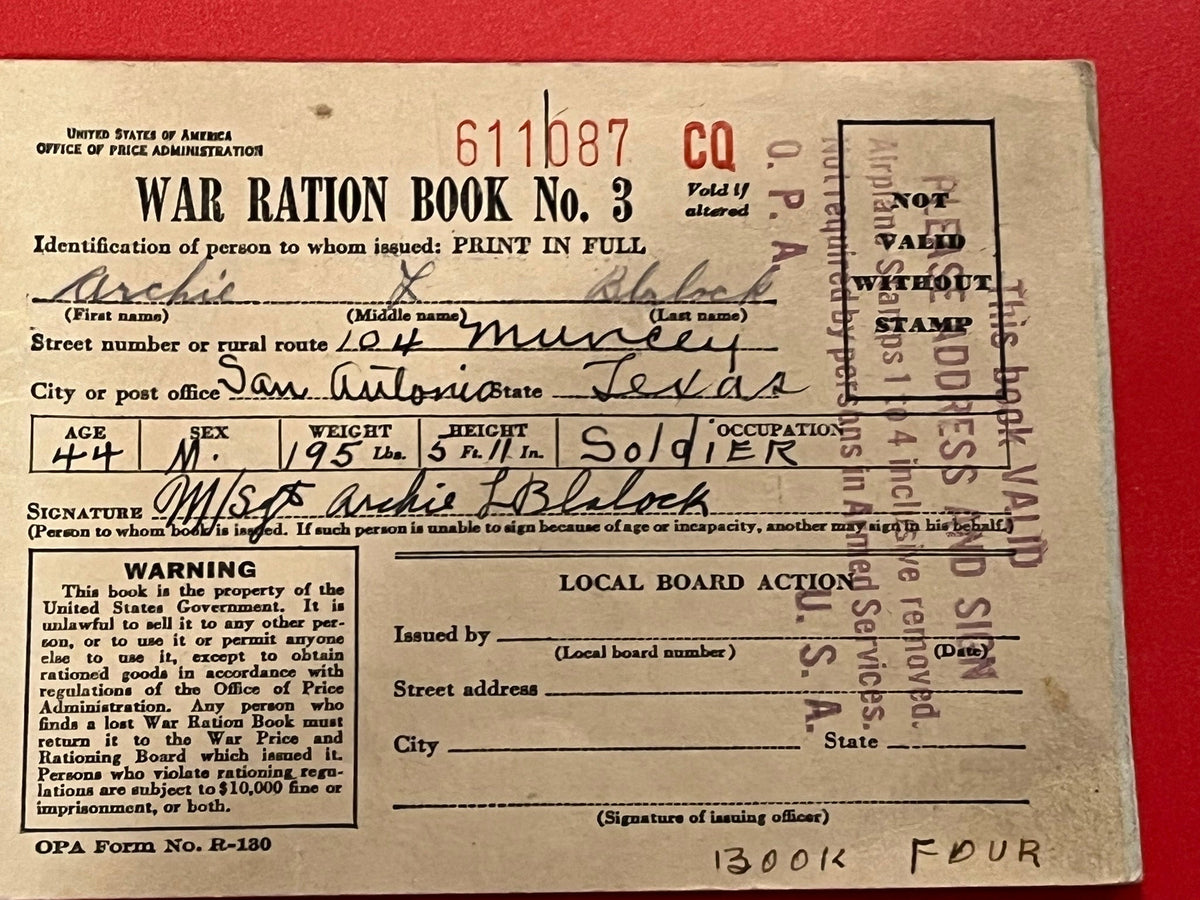 UNITED STATES OF AMERICA
OFFICE OF PRICE ADMINISTRATION
611087 CQ
WAR RATION BOOK No. 3
Void if
altered
NOT
VALID
WITHOUT
STAMP
Identification of person to whom issued: PRINT IN FULL
Archie L Blalock
(First name) (Middle name) (Last name)
Street number or rural route 104 Muncey
City or post office San Antonio State Texas
AGE SEX WEIGHT HEIGHT OCCUPATION
44 M. 195 Lbs. 5 Ft. 11 In. SoldiER
SIGNATURE M/Sgt Archie L Blalock
(Person to whom book is issued. If such person is unable to sign because of age or incapacity, another may sign in his behalf.)
WARNING
This book is the property of the
United States Government. It is
unlawful to sell it to any other per-
son, or to use it or permit anyone
else to use it, except to obtain
rationed goods in accordance with
regulations of the Office of Price
Administration. Any person who
finds a lost War Ration Book must
return it to the War Price and
Rationing Board which issued it.
Persons who violate rationing regu-
lations are subject to $10,000 fine or
imprisonment, or both.
OPA Form No. R-130
LOCAL BOARD ACTION
Issued by
(Local board number) (Date)
Street address
City State
(Signature of issuing officer)
BOOK FOUR
This book VALID
PLEASE ADDRESS AND SIGN
Airplane Stamps 1 to 4 inclusive removed.
Not required by persons in Armed Services.
O. P. A. U. S. A.